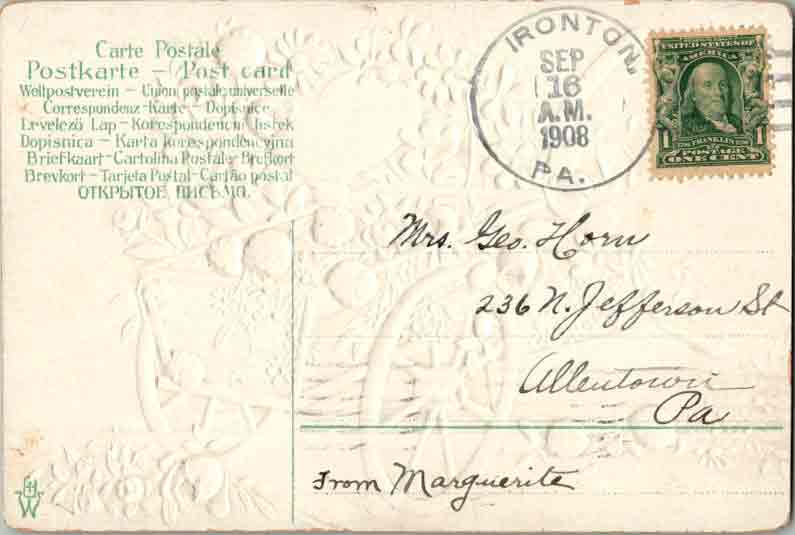 Carte Postale
Postkarte – Post card
Weltpostverein – Union postale universelle
Correspondenz-Karte – Dopisnice
Levelező Lap – Korespondencni listek
Dopisnica – Karta korespondencyjna
Briefkaart – Cartolina Postale – Brefkort
Brevkort – Tarjeta Postal – Cartão postal
ОТКРЫТОЕ ПИСЬМО.
IRONTON,
SEP
16
A.M.
1908
PA.
UNITED STATES OF
AMERICA
1706 FRANKLIN 1790
1 POSTAGE 1
ONE CENT
Mrs. Geo. Horn
236 N. Jefferson St
Allentown
Pa
From Marguerite